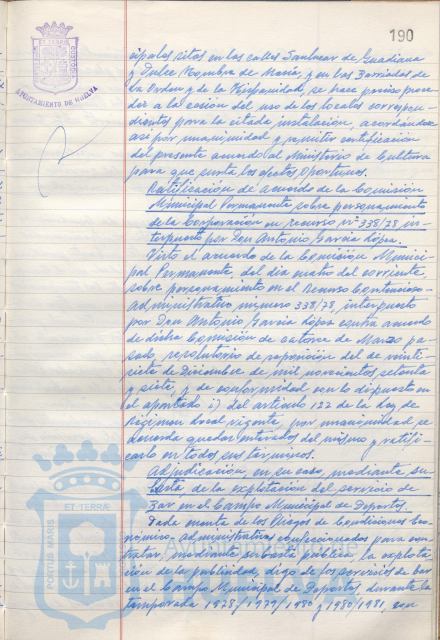 190
AYUNTAMIENTO DE HUELVA
cipales sitos en las calles Sanlucar de Guadiana
y Dulce Nombre de María, y en las Barriadas de
La Orden y de la Hispanidad, se hace preciso proce
der a la cesión del uso de los locales correspon
dientes para la citada instalación, acordándose
así por unanimidad y remitir certificación
del presente acuerdo al Ministerio de Cultura
para que surta los efectos oportunos.
Ratificación de acuerdo de la Comisión
Municipal Permanente sobre personamiento
de la Corporación en recurso nº 338/78 in-
terpuesto por Don Antonio García López.
Visto el acuerdo de la Comisión Munici-
pal Permanente, del día cuatro del corriente,
sobre personamiento en el Recurso Contencioso-
administrativo número 338/78, interpuesto
por Don Antonio García López contra acuerdo
de dicha Comisión de catorce de Marzo pa
sado, resolutorio de reposición del de veinti
siete de Diciembre de mil novecientos setenta
y siete, y de conformidad con lo dispuesto en
el apartado i) del artículo 122 de la Ley de
Régimen Local vigente, por unanimidad se
acuerda quedar enterados del mismo y ratifi
carlo en todos sus terminos.
Adjudicación, en su caso, mediante su-
basta, de la explotación del servicio de
Bar en el Campo Municipal de Deportes.
Dada cuenta de los Pliegos de Condiciones Eco
nómico-administrativas confeccionados para con
tratar, mediante subasta pública la explota
ción de la publicidad, digo de los servicios de bar
en el Campo Municipal de Deportes, durante la
temporada 1978/1979/1980 y 1980/1981, con
ET TERRÆ
PORTUS MARIS